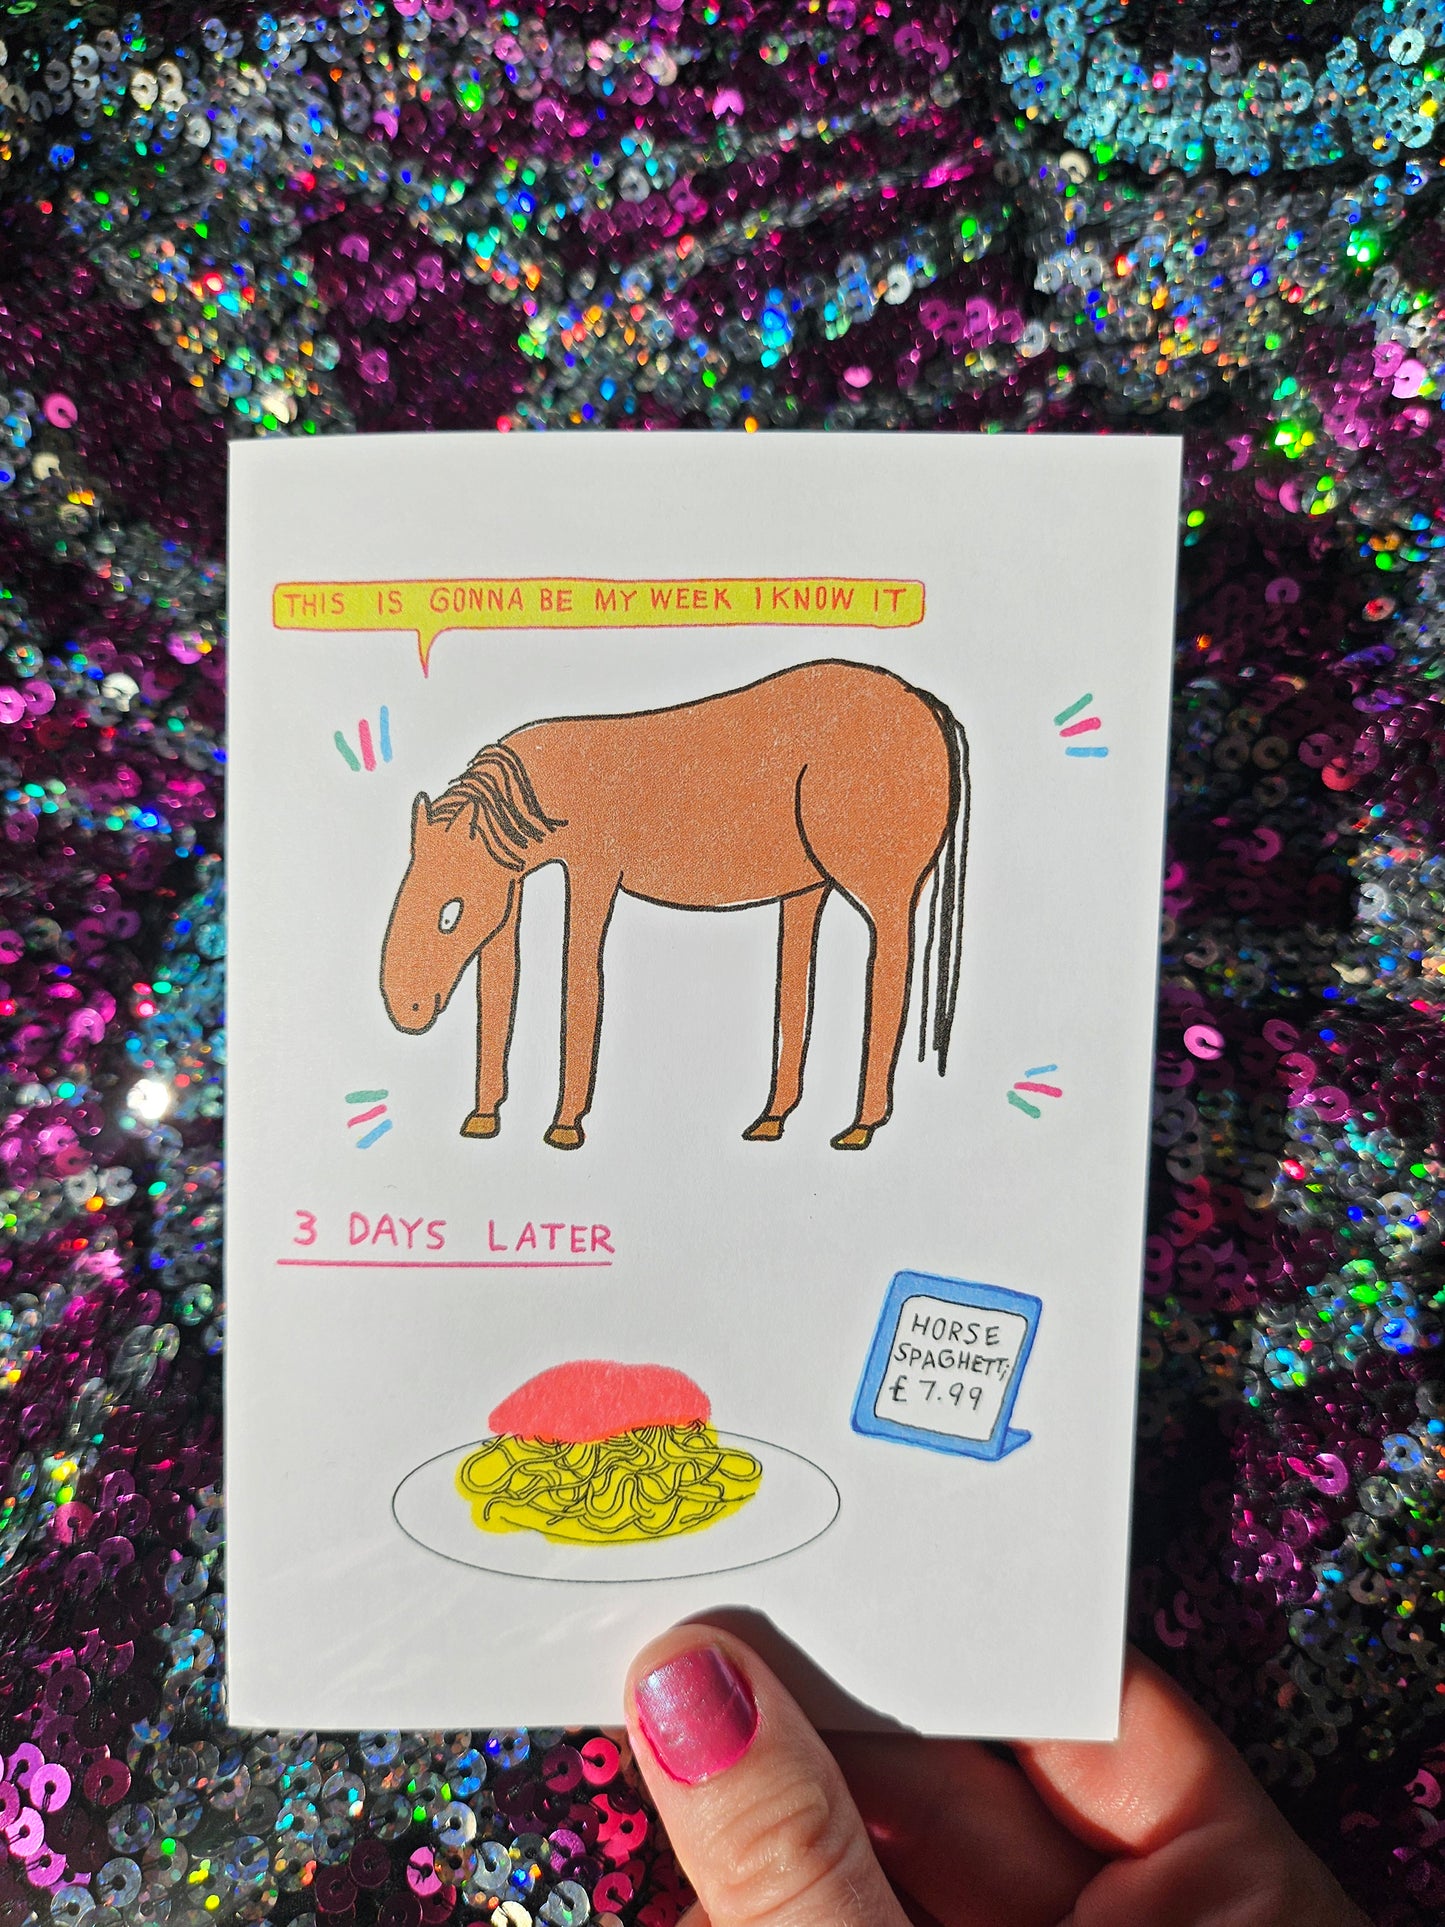 THIS IS GONNA BE MY WEEK I KNOW IT
3 DAYS LATER
HORSE
SPAGHETTi
£ 7.99